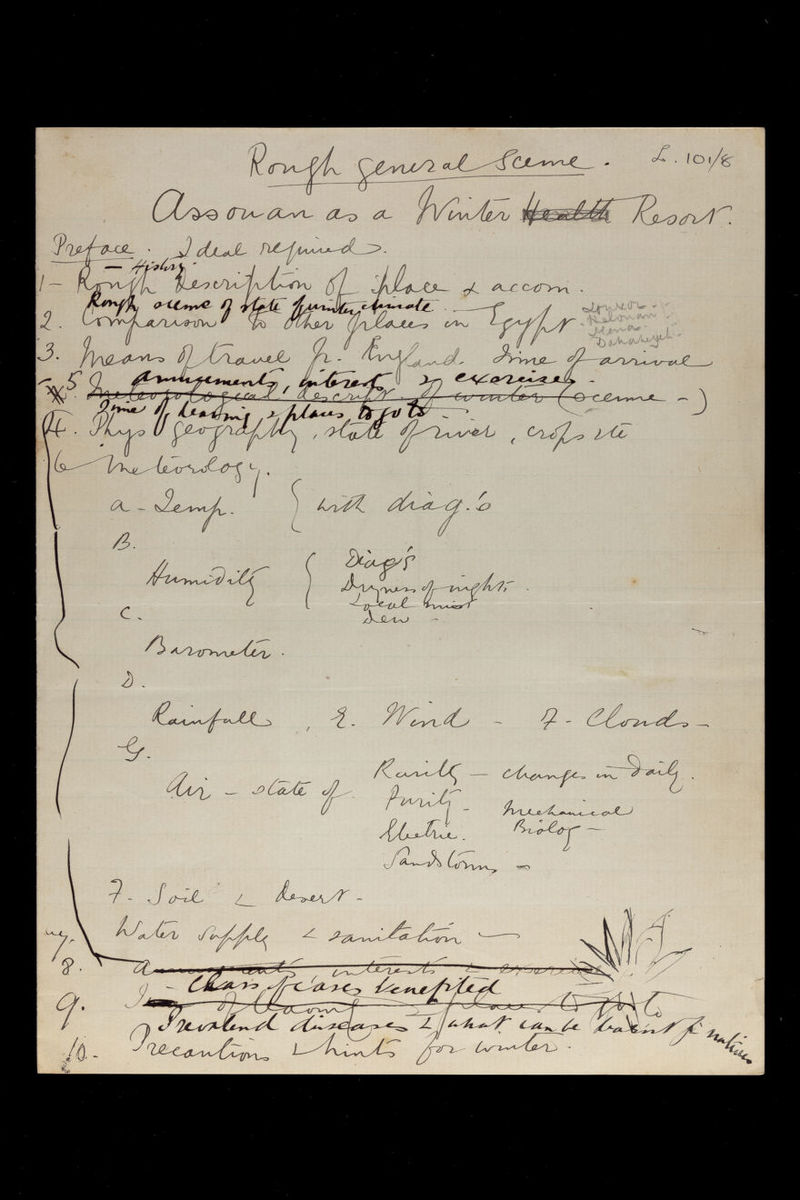 Rough general Sceme. L. 101/8
Assouan as a Winter Health Resort.
Preface. Ideal required.
— History
1 — Rough description of place & accom.
Rough sceme of state of winter climate
2. Comparison to other places in Egypt - Louxor -
Helouan
Mena -
Dahabeyah
3. Means of travel fr. England. Time of arrival
amusements, interests & exercises.
5. Meteorological descript. of winter (sceme -)
Time of leaving & places to go to
4. Phys geography, state of river, crops etc
6 Meteorology.
a - Temp. { with diag.s
B.
Humidity { Diag's
Dryness of nights.
Local mist
Dew -
C.
Barometer.
D.
Rainfall, E. Wind - F - Clouds -
G.
Air - state of Rarity - changes in Daily.
Purity - Mechanical
Electric. Biolog -
Sandstorms -
F. Soil & desert -
Water supply & sanitation -
8. Amusements interests & exercises
- Class of cases benefited
9. of leaving & places to go to
Prevalend diseases & what can be learnt fr natives
10. Precautions & hints for winter.